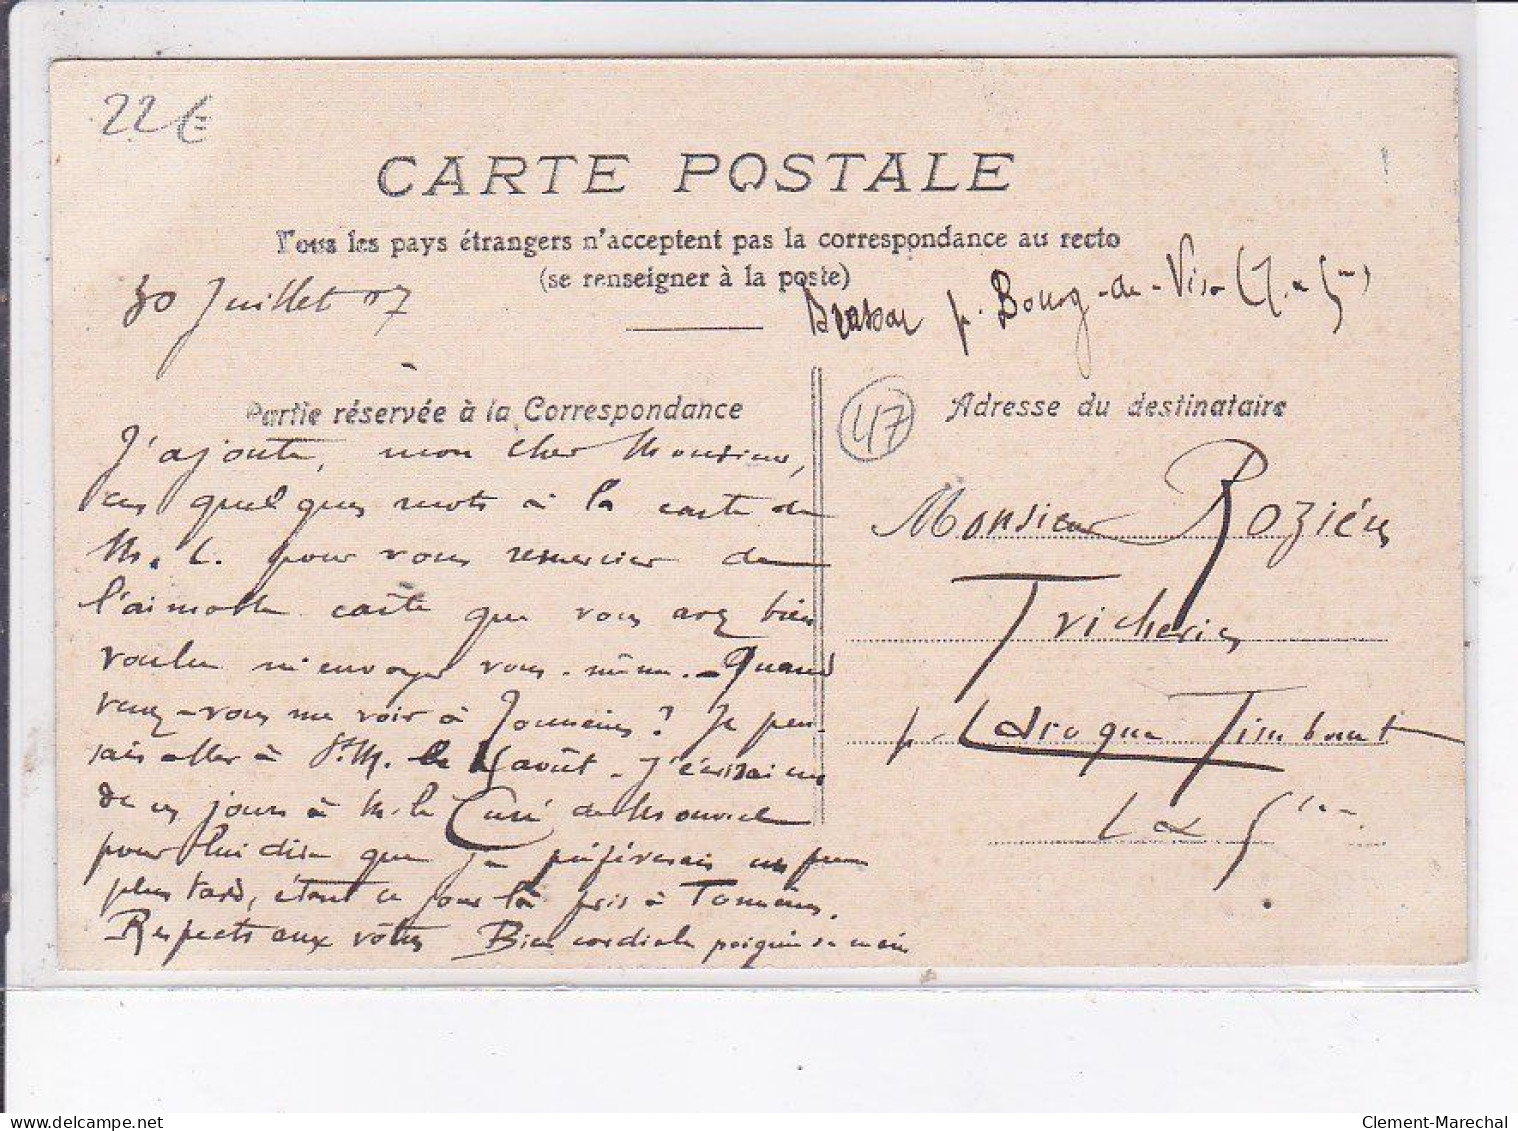 22€
CARTE POSTALE
Tous les pays étrangers n'acceptent pas la correspondance au recto
(se renseigner à la poste)
30 Juillet 07
Brassac p. Bourg-de-Visa (T. & Gne)
Partie réservée à la Correspondance
47
Adresse du destinataire
J'ajoute, mon cher Monsieur,
ces quelques mots à la carte de
M. L. pour vous remercier de
l'aimable carte que vous avez bien
voulu m'envoyer vous-même. - Quand
venez-vous me voir à Tonneins? Je pen-
sais aller à St. M. le 15 août. J'écrivai
de ces jours à M. le Curé de
pour lui dire que je préférerais un peu
plus tard, étant ce jour là pris à Tonneins.
Respects aux vôtres Bien cordiale poignée de main
Monsieur Rozières
Tricheries
p. Laroque Timbaut
L & Gne.
delcampe.net
Clement-Marechal